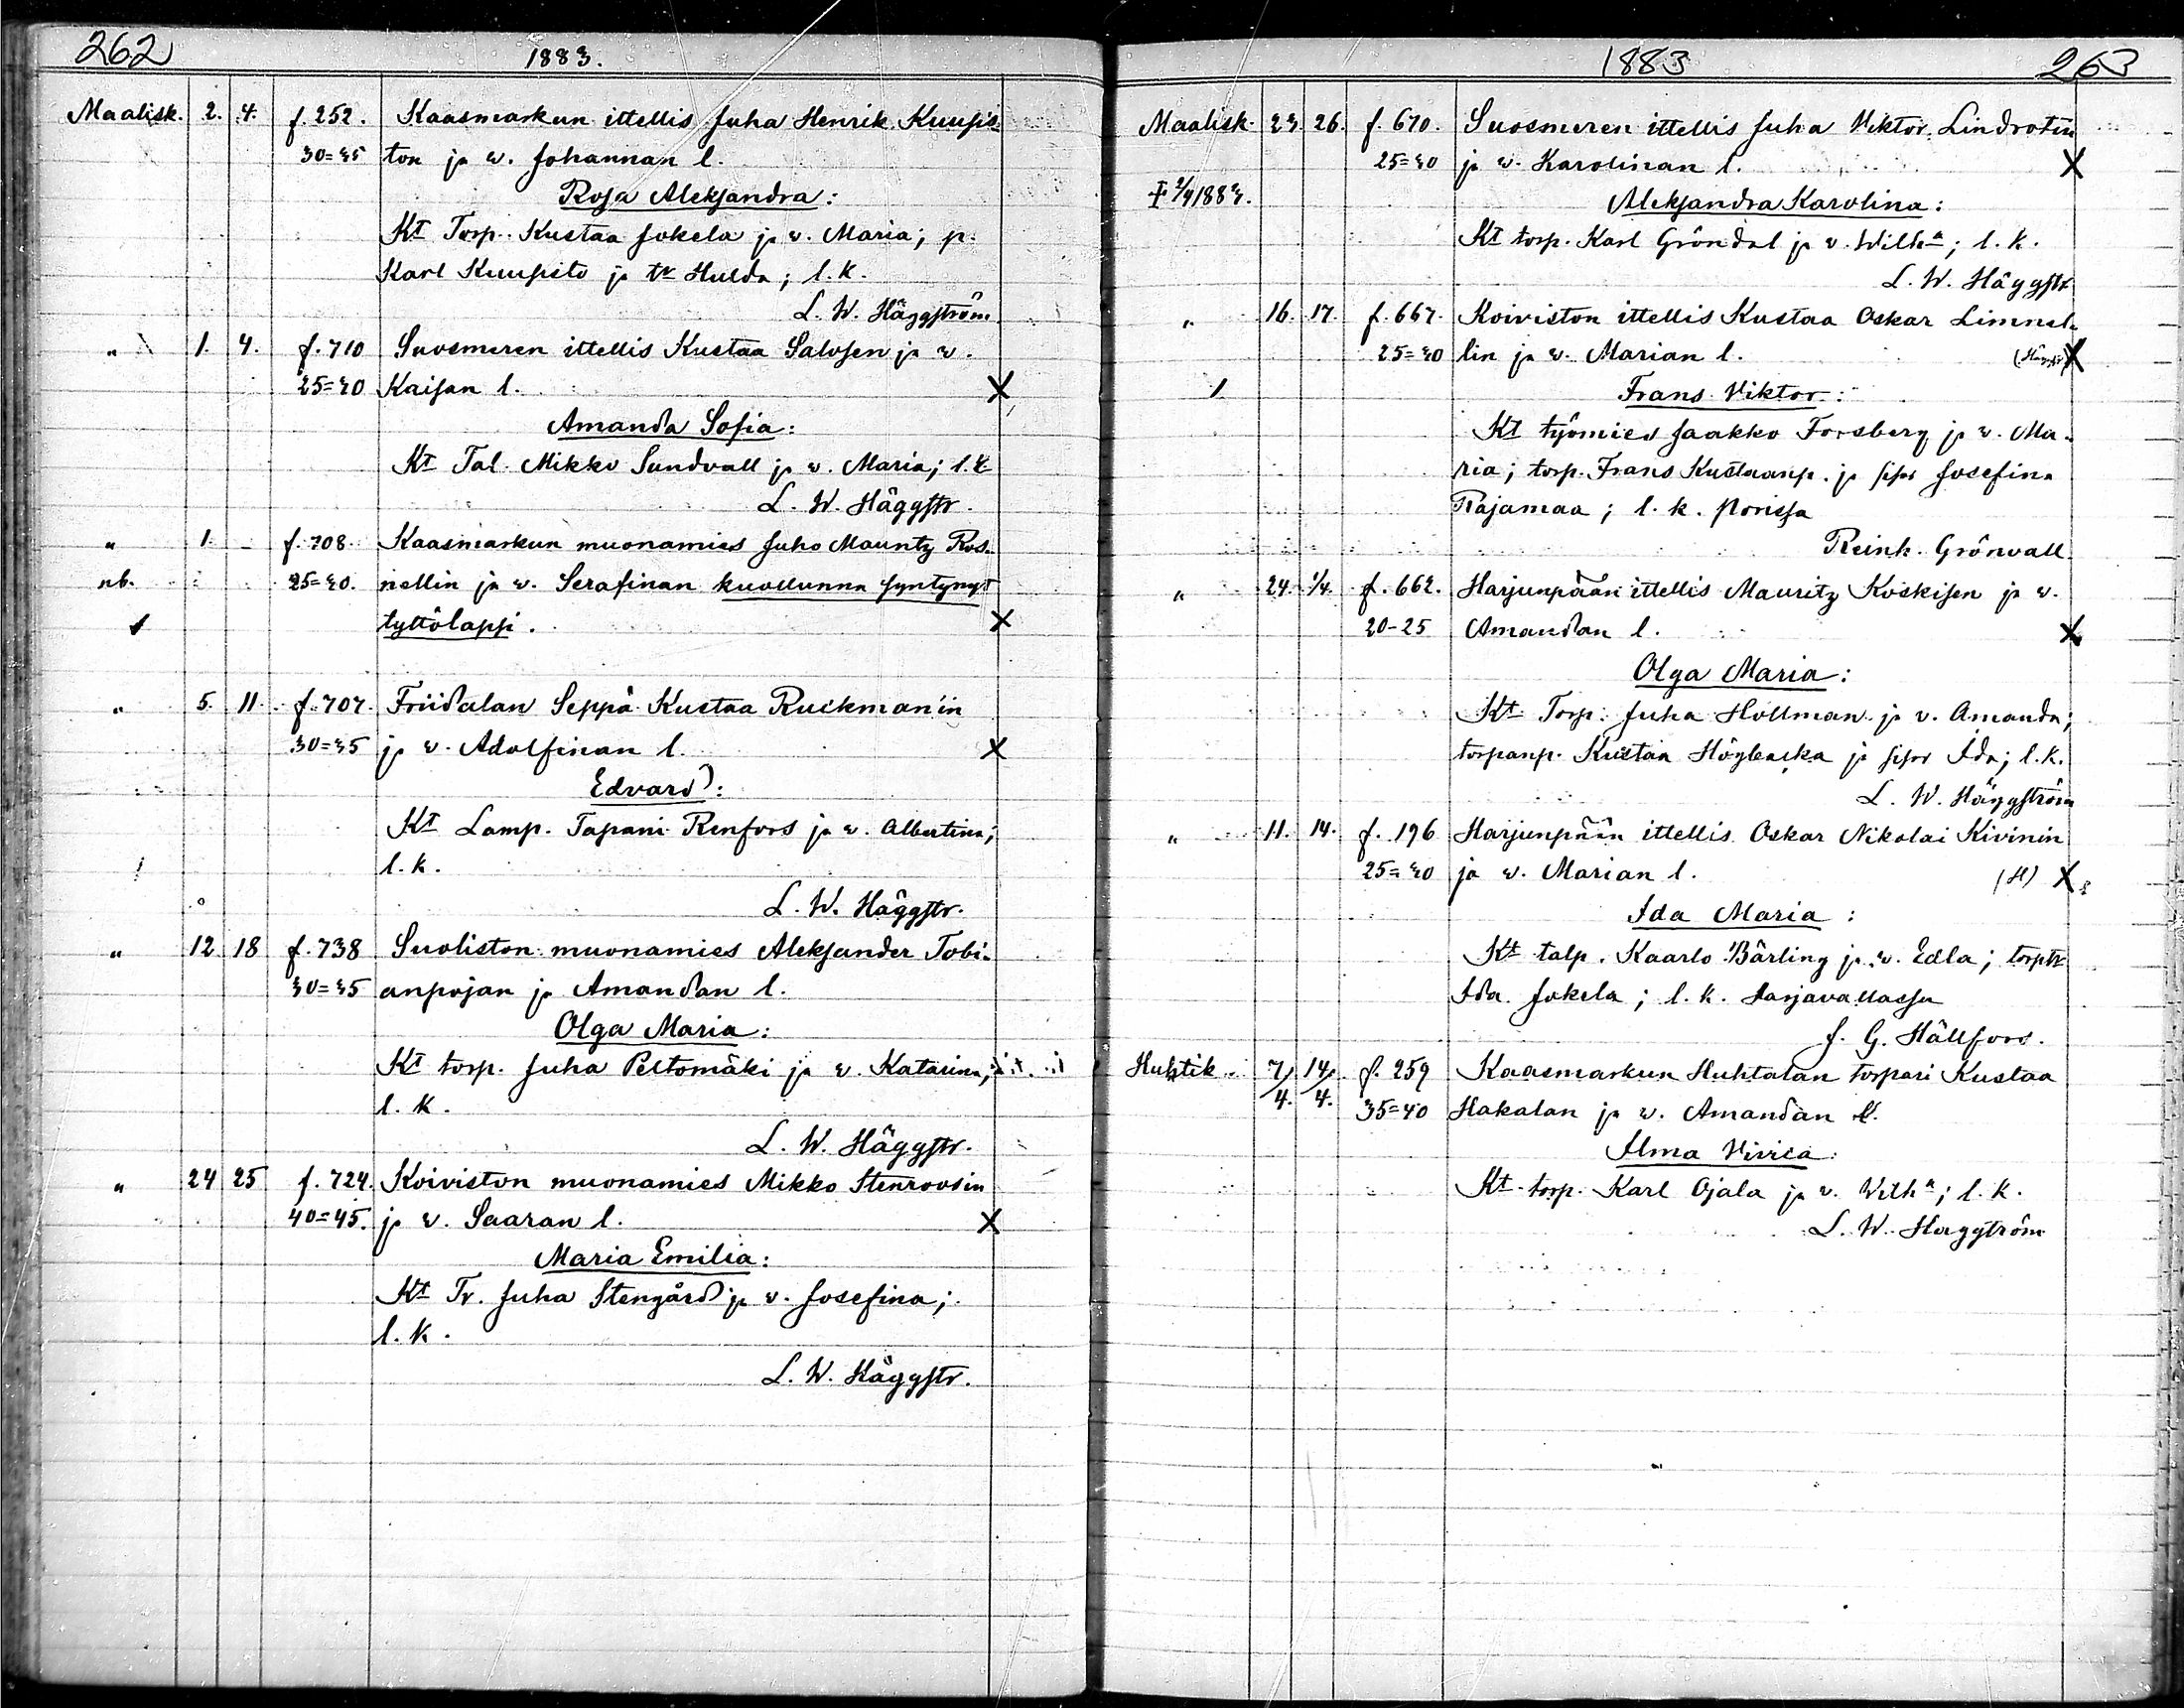 262
1883.
Maalisk. 2. 4. f. 252. Kaasmarkun ittellis Juha Henrik Kuusis-
30=35 ton ja v. Johannan l.
Rosa Aleksandra:
Kt Torp. Kustaa Jokela ja v. Maria; p.
Karl Kuusisto ja tr Hulda; l. k.
L. W. Häggström
" 1. 4. f. 710 Suosmeren ittellis Kustaa Salosen ja v.
25=30 Kaisan l. X
Amanda Sofia:
Kt Tal. Mikko Sundvall ja v. Maria; l. k.
L. W. Häggstr.
" 1. f. 708. Kaasmarkun muonamies Juho Mauritz Ros-
nb. 25=30. nellin ja v. Serafinan kuollunna syntynyt
tyttölapsi. X
" 5. 11. f. 707. Friidalan Seppä Kustaa Ruckman'in
30=35 ja v. Adolfinan l. X
Edvard:
Kt Lamp. Tapani Renfors ja v. Albertina;
l. k.
L. W. Häggstr.
" 12 18 f. 738 Suoliston muonamies Aleksander Tobi-
30=35 anpojan ja Amandan l.
Olga Maria:
Kt torp. Juha Peltomäki ja v. Katarina;
l. k.
L. W. Häggstr.
" 24 25 f. 724. Koiviston muonamies Mikko Stenroosin
40=45. ja v. Saaran l. X
Maria Emilia:
Kt Tr. Juha Stengård ja v. Josefina;
l. k.
L. W. Häggstr.
1883
263
Maalisk. 23 26. f. 670. Suosmeren ittellis Juha Viktor Lindrotin
25=30 ja v. Karolinan l. X
1883. Aleksandra Karolina:
Kt torp. Karl Gröndal ja v. Wilha; l. k.
L. W. Häggstr.
" 16. 17. f. 667. Koiviston ittellis Kustaa Oskar Limnel-
25=30 lin ja v. Marian l. X
Frans Viktor:
Kt työmies Jaakko Forsberg ja v. Ma-
ria; torp. Frans Kustaanp. ja sisar Josefina
Rajamaa; l. k. Porissa
Reinh. Grönvall
" 24. 1/4. f. 662. Harjunpään ittellis Mauritz Koskisen ja v.
20-25 Amandan l. X
Olga Maria:
Kt Torp. Juha Hollman ja v. Amanda;
torpanp. Kustaa Högbacka ja sisar Ida; l. k.
L. W. Häggström
" 11. 14. f. 196 Harjunpään ittellis Oskar Nikolai Kivinin
25=30 ja v. Marian l. (H) X
Ida Maria:
Kt talp. Kaarlo Bärling ja v. Edla; torptr
Ida Jokela; l. k. Harjavallassa
J. G. Hällfors.
Huhtik. 7/4. 14/4. f. 259 Kaasmarkun Huhtalan torpari Kustaa
35=40 Hakalan ja v. Amandan l.
Alma
Kt torp. Karl Ojala ja v. Wilha; l. k.
L. W. Häggström